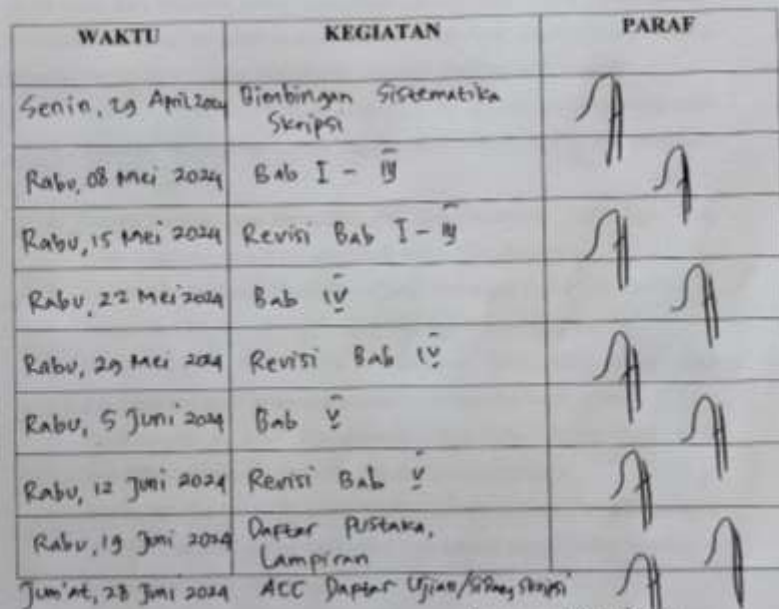 WAKTU KEGIATAN PARAF
Senin, 29 April 2024 Bimbingan Sistematika
Skripsi
Rabu, 08 Mei 2024 Bab I - III
Rabu, 15 Mei 2024 Revisi Bab I - III
Rabu, 22 Mei 2024 Bab IV
Rabu, 29 Mei 2024 Revisi Bab IV
Rabu, 5 Juni 2024 Bab V
Rabu, 12 Juni 2024 Revisi Bab V
Rabu, 19 Juni 2024 Daftar Pustaka,
Lampiran
Jum'at, 28 Juni 2024 ACC Daftar Ujian/Sidang Skripsi